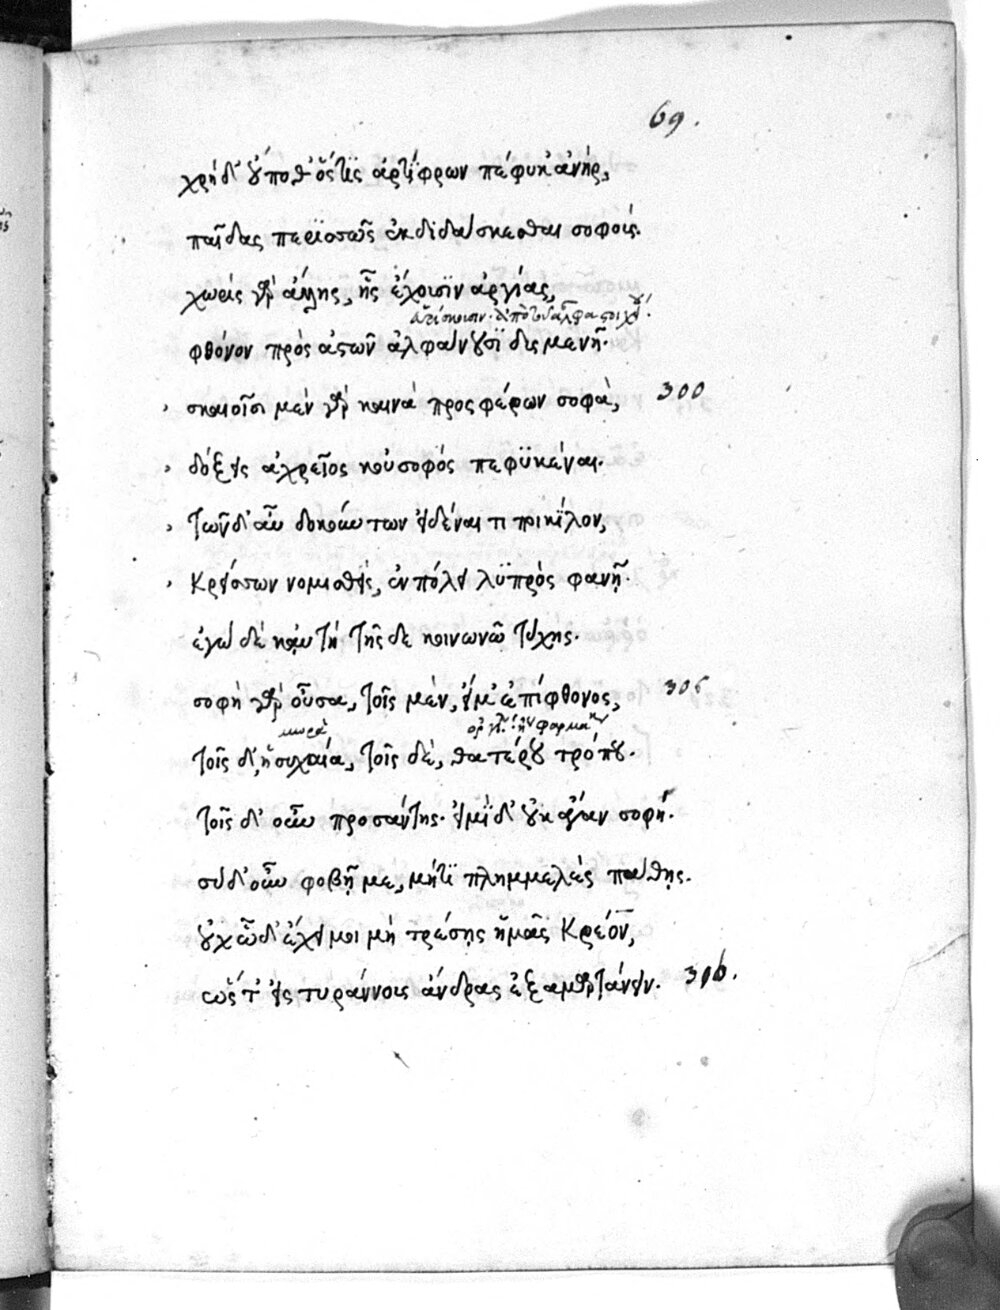 69.
χρὴ δ' οὔποθ' ὅστις ἀρτίφρων πέφυκ' ἀνήρ,
παῖδας περισσῶς ἐκδιδάσκεσθαι σοφούς.
χωρὶς γὰρ ἄλλης, ἧς ἔχουσϊν ἀργίας,
φθόνον πρὸς ἀστῶν ἀλφάνουσϊ δυσμενῆ.
σκαιοῖσι μὲν γὰρ καινὰ προσφέρων σοφὰ, 300
δόξεις ἀχρεῖος κοὐ σοφός πεφϋκέναι.
τῶν δ' αὖ δοκούντων εἰδέναι τι ποικίλον,
Κρείσσων νομισθεὶς, ἐν πόλει λϋπρὸς φανῇ.
ἐγὼ δὲ καὐτὴ τῆς δε κοινωνῶ τύχης.
σοφὴ γὰρ οὖσα, τοῖς μέν, εἰμ' ἐπίφθονος, 305
μωρὰ
τοῖς δ', ἡσυχαία, τοῖς δὲ, θατέρου τρόπου.
τοῖς δ' οὖν προσάντης. εἰμὶ δ' οὐκ ἄγαν σοφή.
σὺ δ' οὖν φοβῇ με, μήτϊ πλημμελὲς πάθῃς.
οὐχ ὧδ' ἔχει μοι μὴ τρέσῃς ἡμᾶς Κρέον,
ὥστ' εἰς τυράννους ἄνδρας ἐξαμαρτάνειν. 310.